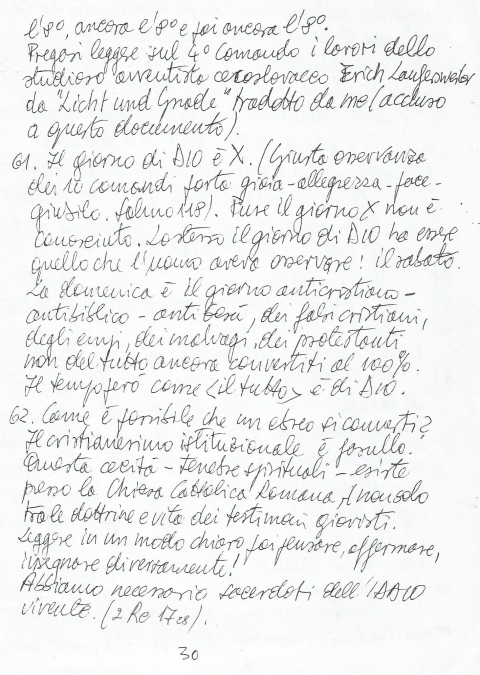 l'8º, ancora l'8º e poi ancora l'8º.
Pregasi leggere sul 4º Comando i lavori dello
studioso avventista cecoslovacco Erich
da "Licht und Gnade" tradotto da me (accluso
a questo documento).
61. Il giorno di DIO è X. (Giusta osservanza
dei 10 comandi porta gioia - allegrezza - pace -
giubilo. Salmo 118). Pure il giorno X non è
conosciuto. Lo stesso il giorno di DIO ha essere
quello che l'uomo aveva osservare! il sabato.
La domenica è il giorno anticristiano -
antibiblico - dei falsi cristiani,
degli empi, dei malvagi, dei protestanti
non del tutto ancora convertiti al 100%.
Il tempo però come <il tutto> è di DIO.
62. Come è possibile che un ebreo si converti?
Il cristianesimo istituzionale è fasullo.
Questa cecità - tenebre spirituali - esiste
presso la Chiesa Cattolica Romana, nonsolo
tra le dottrine e vita dei testimoni giovisti.
Leggere in un modo chiaro poi pensare, affermare,
insegnare diversamente!
Abbiamo necessario sacerdoti dell'IDDIO
vivente. (2 Re 17 28).
30